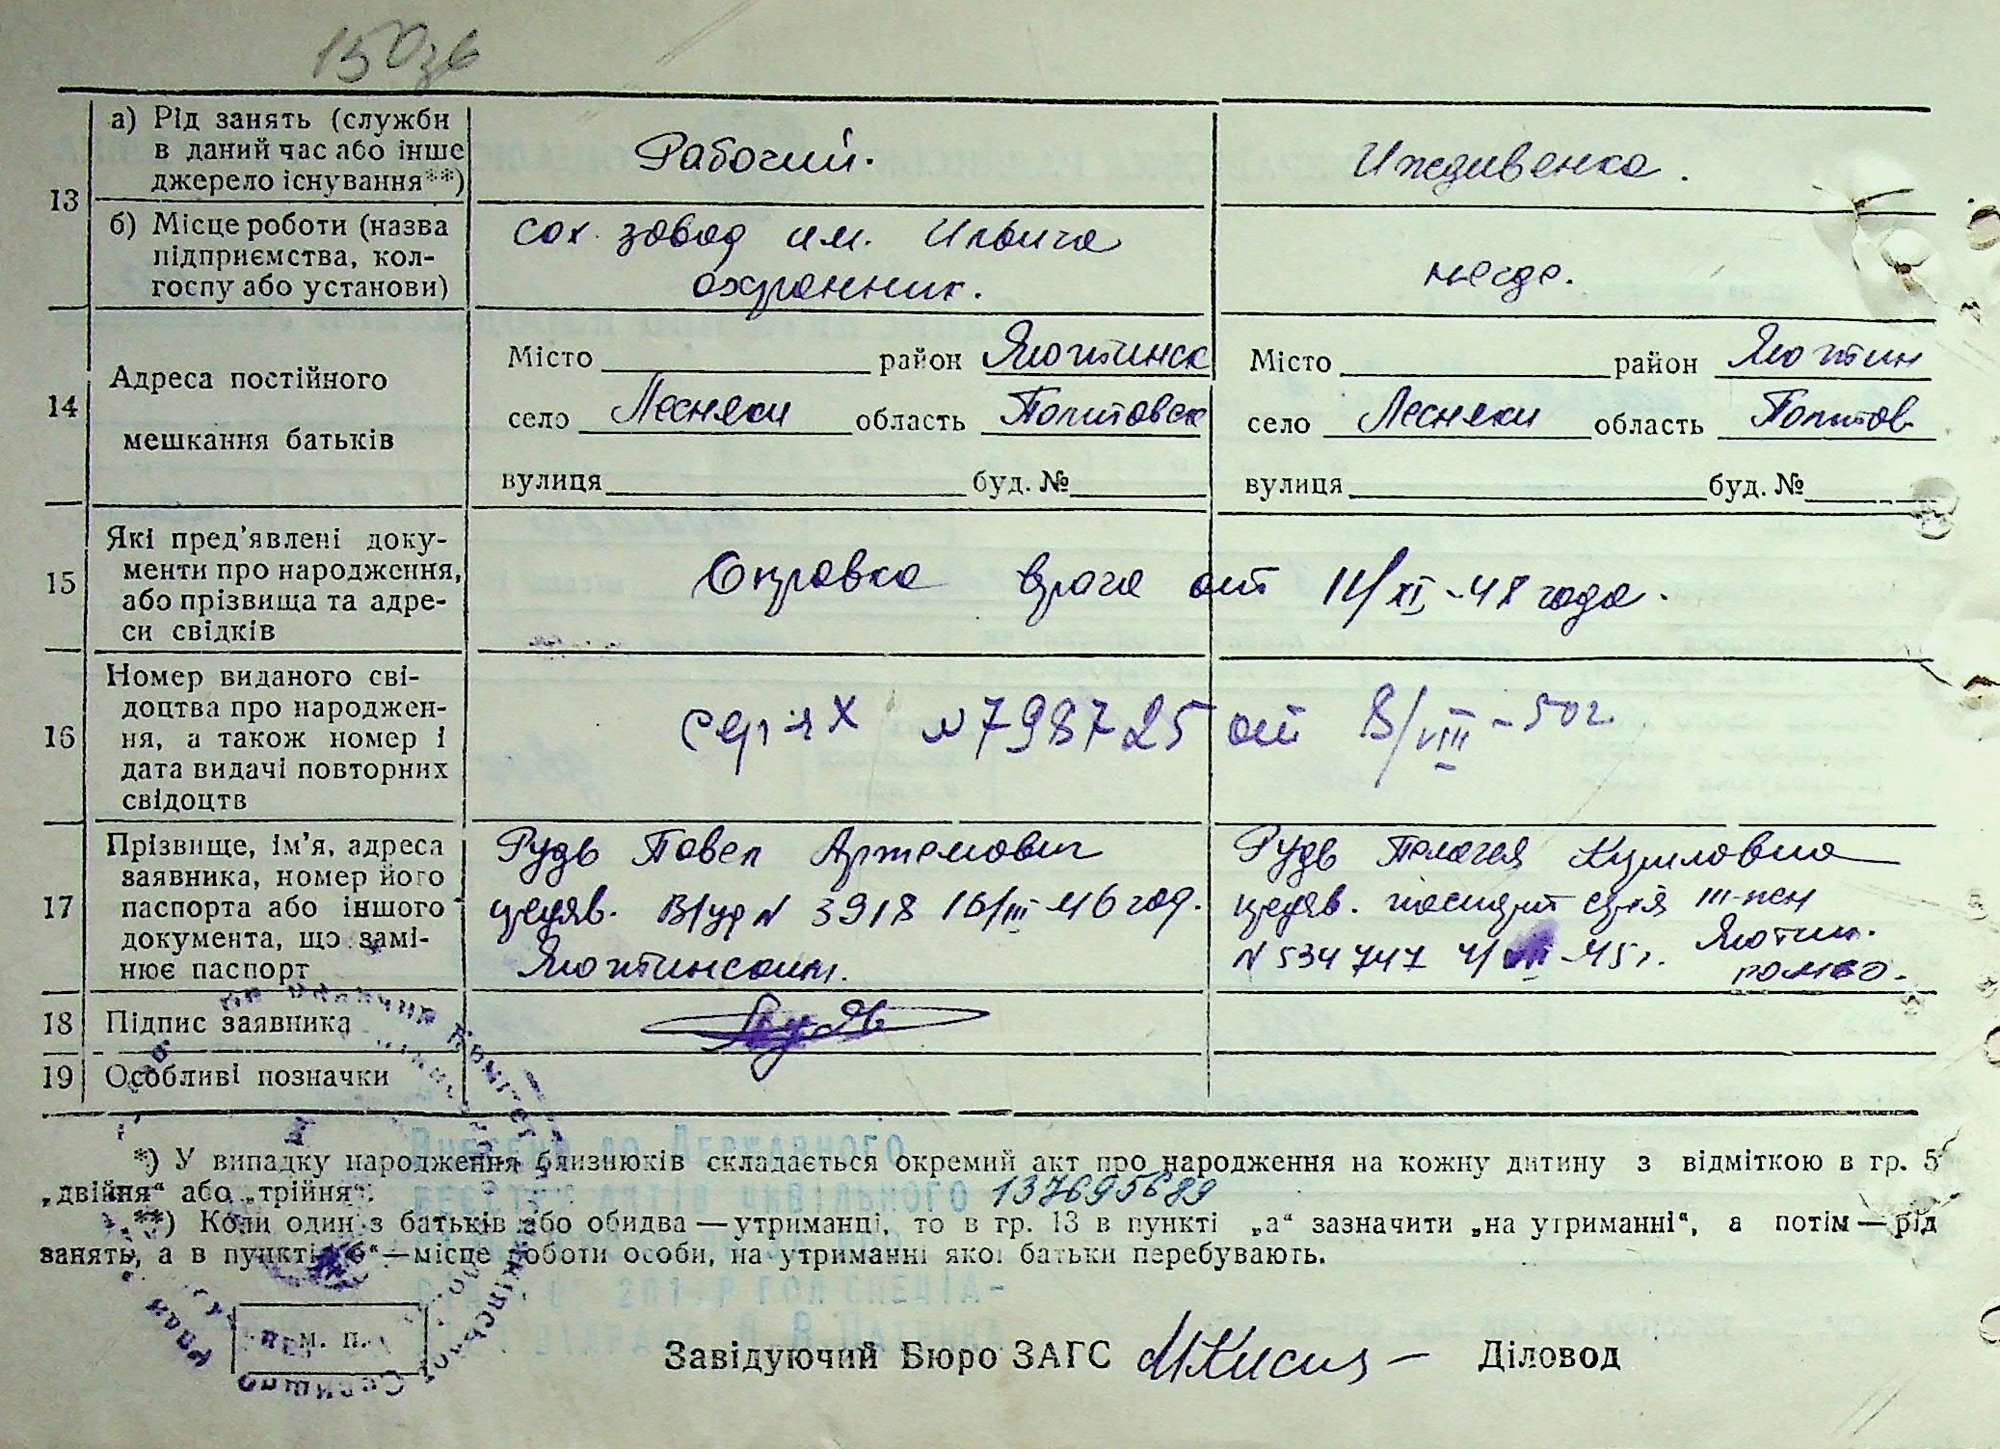 150зв
13
а) Рід занять (служби
в даний час або інше
джерело існування**)
Рабочий.
Иждивенка.
б) Місце роботи (назва
підприємства, кол-
госпу або установи)
сах. завод им. Ильича
охранник.
негде.
14
Адреса постійного
мешкання батьків
Місто район Яготинск
село Лесняки область Полтовск
вулиця буд. №
Місто район Яготин
село Лесняки область Полтов.
вулиця буд. №
15
Які пред’явлені доку-
менти про народження,
або прізвища та адре-
си свідків
Справка врача от /XI-48 года.
16
Номер виданого сві-
доцтва про народжен-
ня, а також номер і
дата видачі повторних
свідоцтв
серия Х №798725 от 8/VIII-50г
17
Прізвище, ім’я, адреса
заявника, номер його
паспорта або іншого
документа, що замі-
нює паспорт
Рудь Павел Артемович
N 3918 16/III-46 год.
Рудь Пелагея
паспорт серия
N 534747 -45г. Яготин.
18 Підпис заявника
Рудь
19 Особливі позначки
*) У випадку народження близнюків складається окремий акт про народження на кожну дитину з відміткою в гр. 5
„двійня“ або „трійня“.
137695689
**) Коли один з батьків або обидва — утриманці, то в гр. 13 в пункті „а“ зазначити „на утриманні“, а потім — рід
занять, а в пункті „б“ — місце роботи особи, на утриманні якої батьки перебувають.
Внесено до Державного
реєстру актів цивільного
м. п.
Завідуючий Бюро ЗАГС Діловод